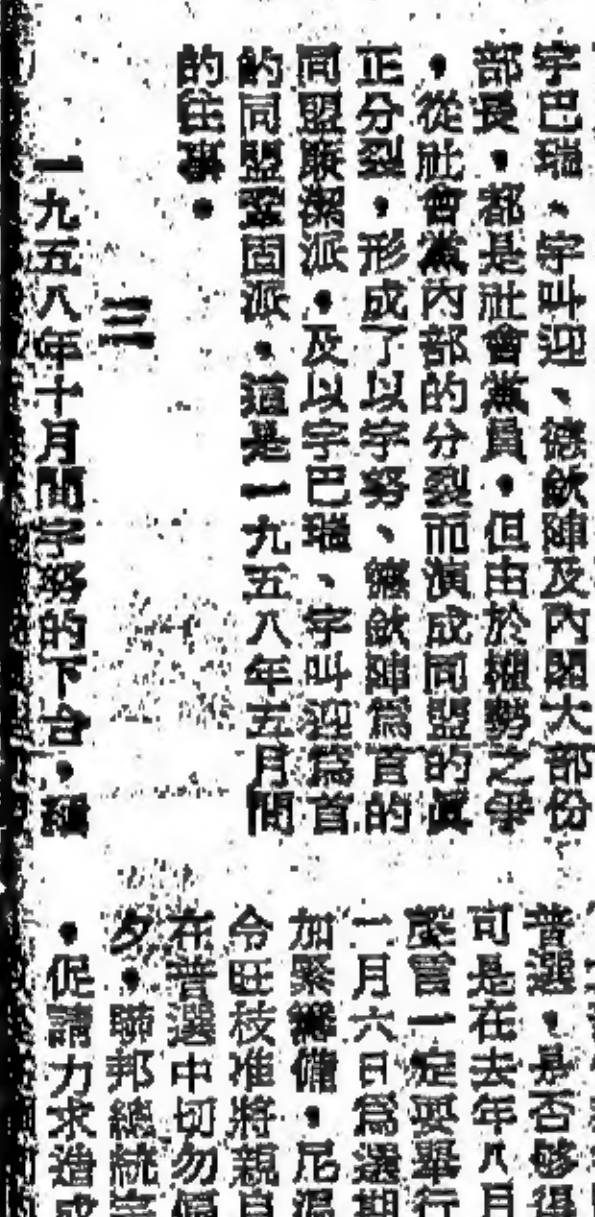 宇巴瑞、宇叫迎、德欽陣及內閣大部份
部長，都是社會黨員，但由於權勢之爭
，從社會黨內部的分裂而演成同盟的真
正分裂，形成了以宇努、德欽陣爲首的
同盟廉潔派，及以宇巴瑞、宇叫迎爲首
的同盟鞏固派，這是一九五八年五月間
的往事。
三
一九五八年十月間宇努的下台，
普選，是否够得
可是在去年八月
聲言一定要舉行
二月六日爲選期
加緊籌備，尼溫
令旺枝准將親自
在普選中切勿偏
夕，聯邦總統宇
，促請力求造成